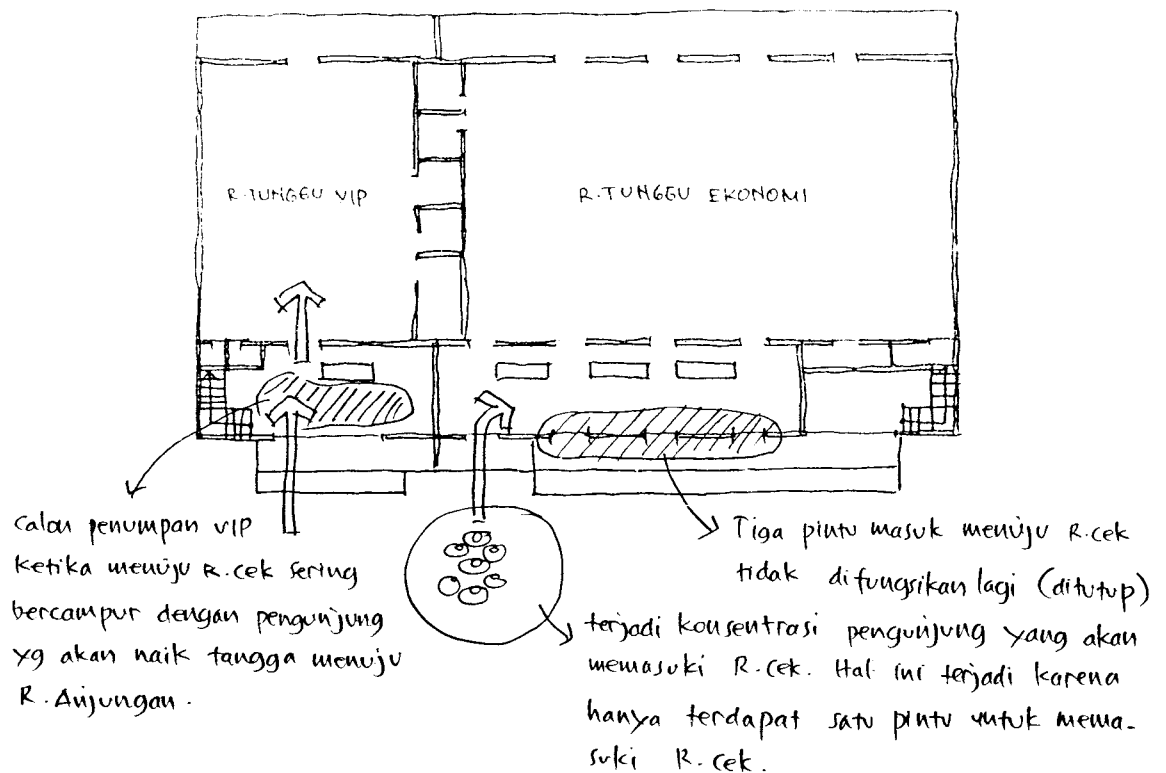 R.TUNGGU VIP
R.TUNGGU EKONOMI
Calon penumpan VIP
ketika menuju R.cek sering
bercampur dengan pengunjung
yg akan naik tangga menuju
R.Anjungan.
Tiga pintu masuk menuju R.cek
tidak difungsikan lagi (ditutup)
terjadi konsentrasi pengunjung yang akan
memasuki R.cek. Hal ini terjadi karena
hanya terdapat satu pintu untuk mema-
suki R.cek.